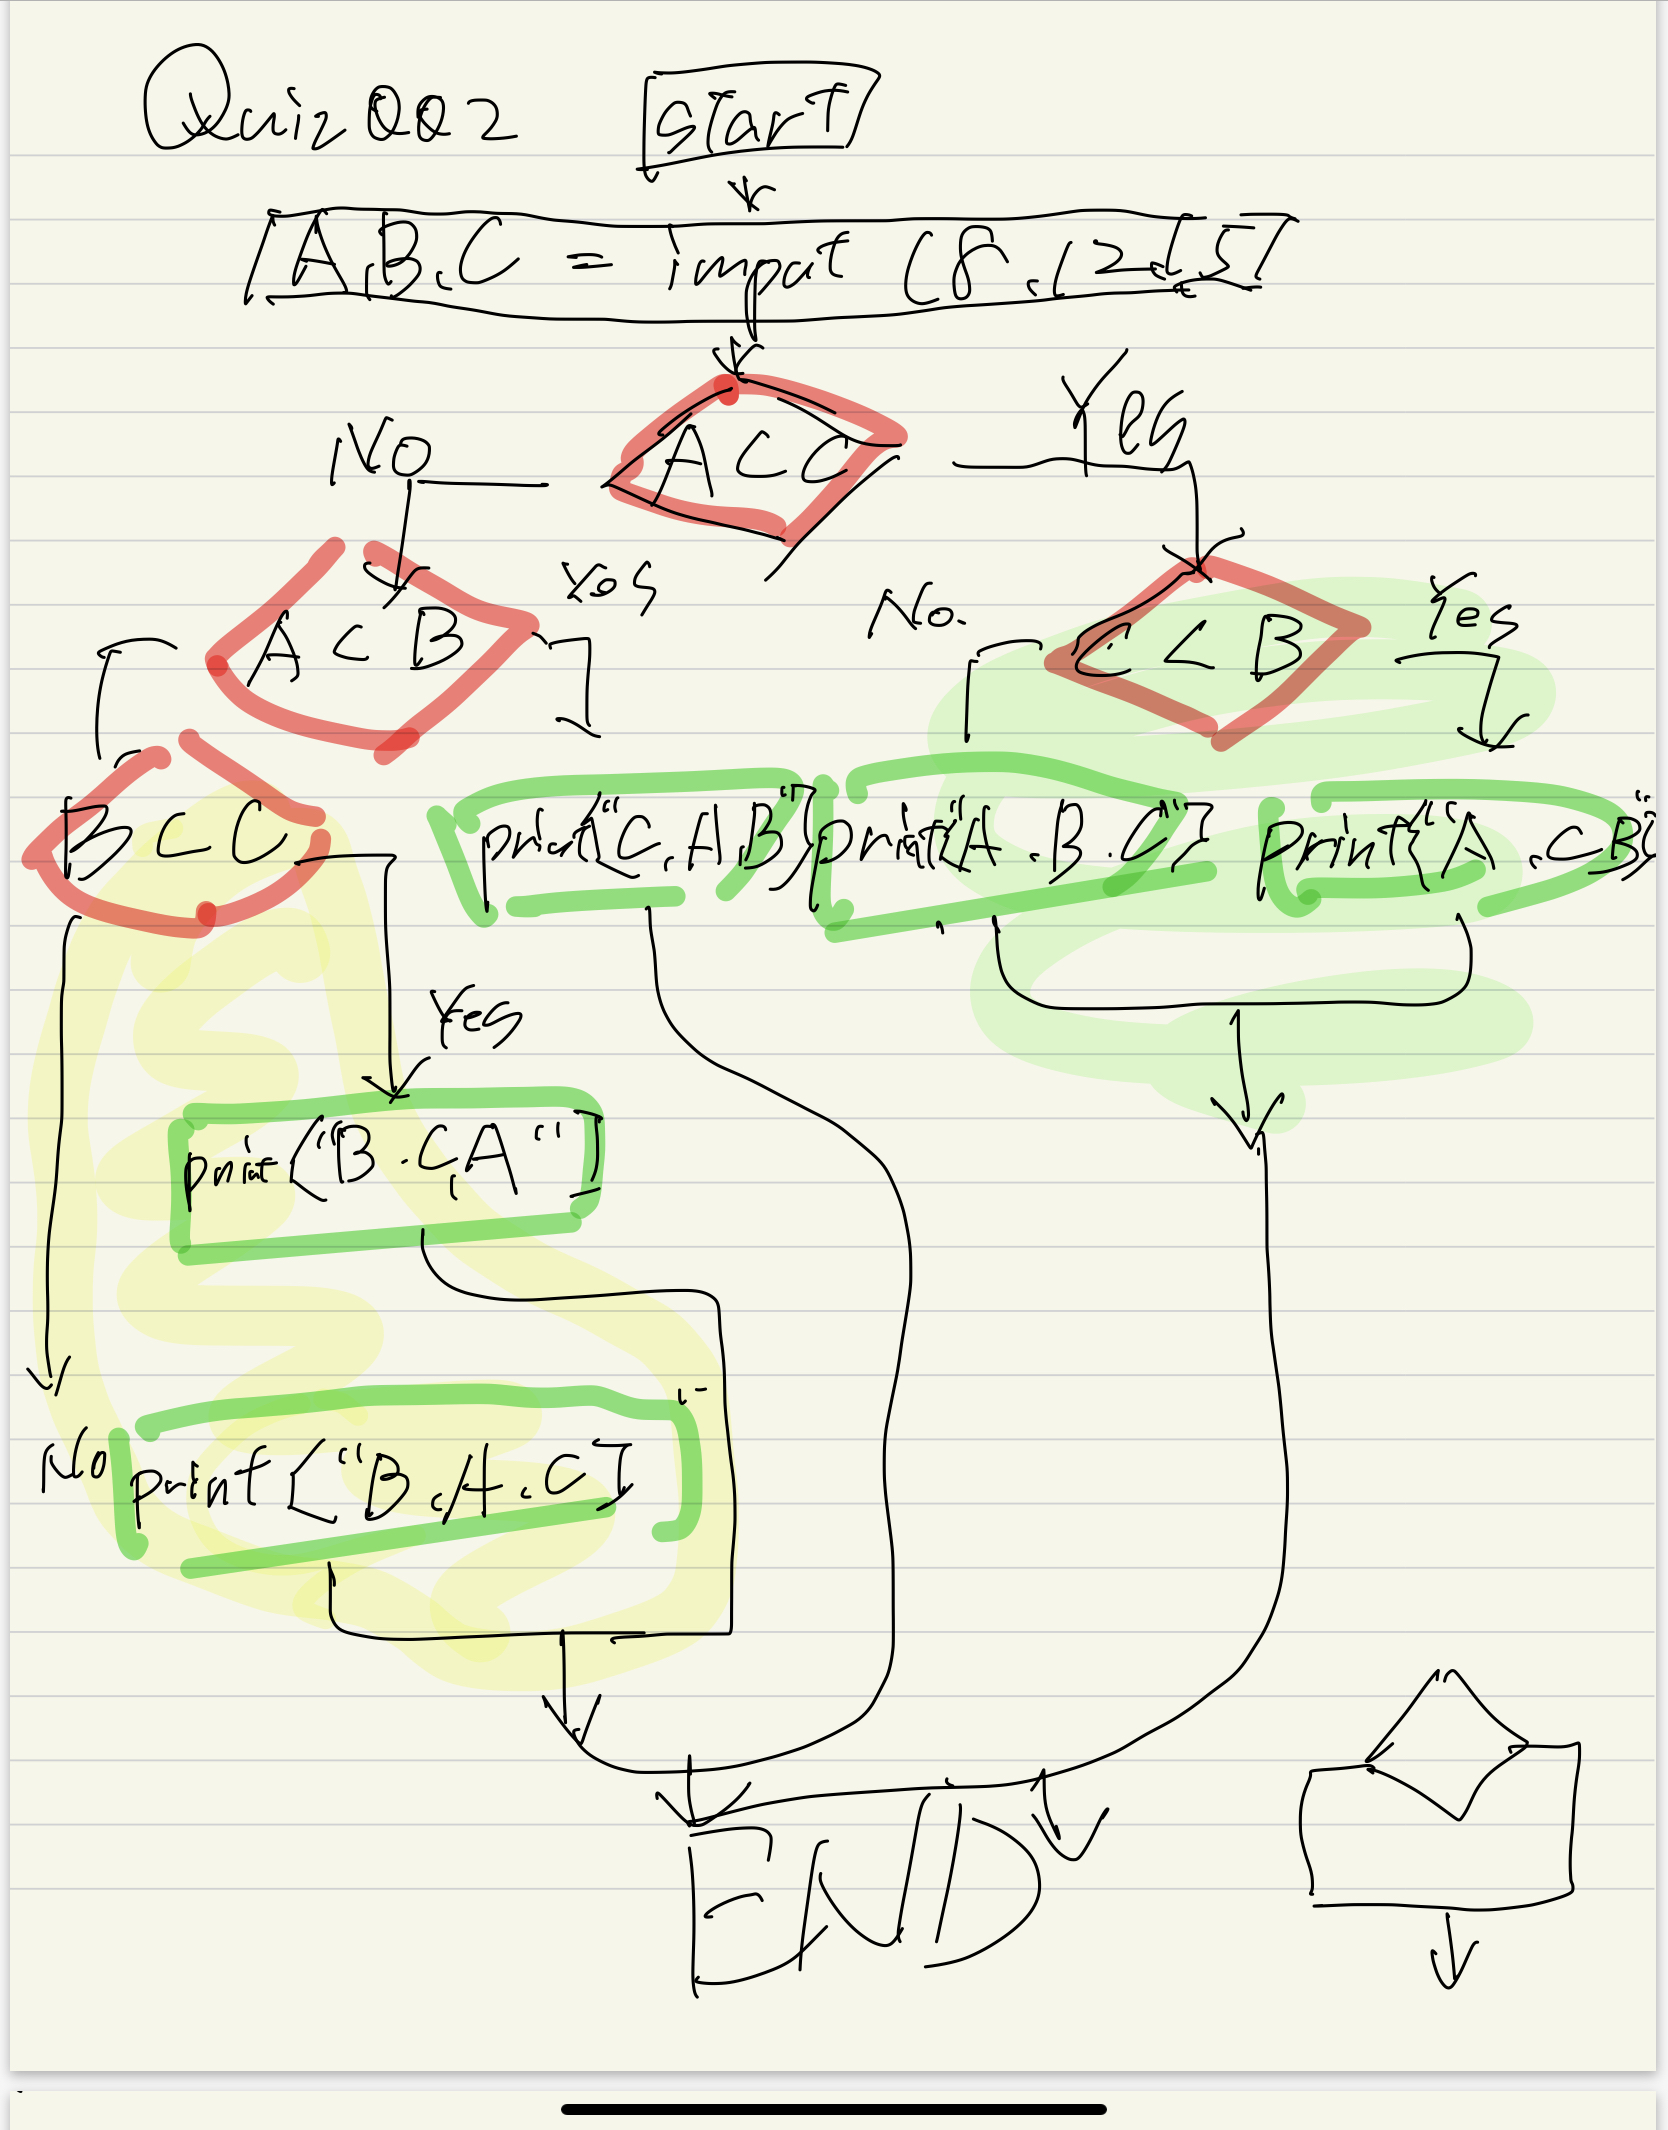 Quiz 002
start
A,B,C = input (8,12,15]
A < C
No
Yes
A < B
Yes
No.
C < B
Yes
B < C
print("C,A,B"]
print("A.B.C"]
print("A,CB"
Yes
print("B.C,A"]
No
print["B,A.C]
END